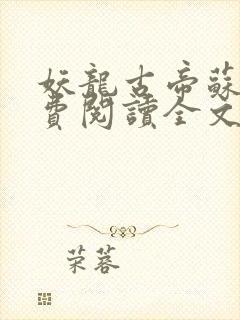 妖龍古帝蘇
費閱讀全文
荣蓉